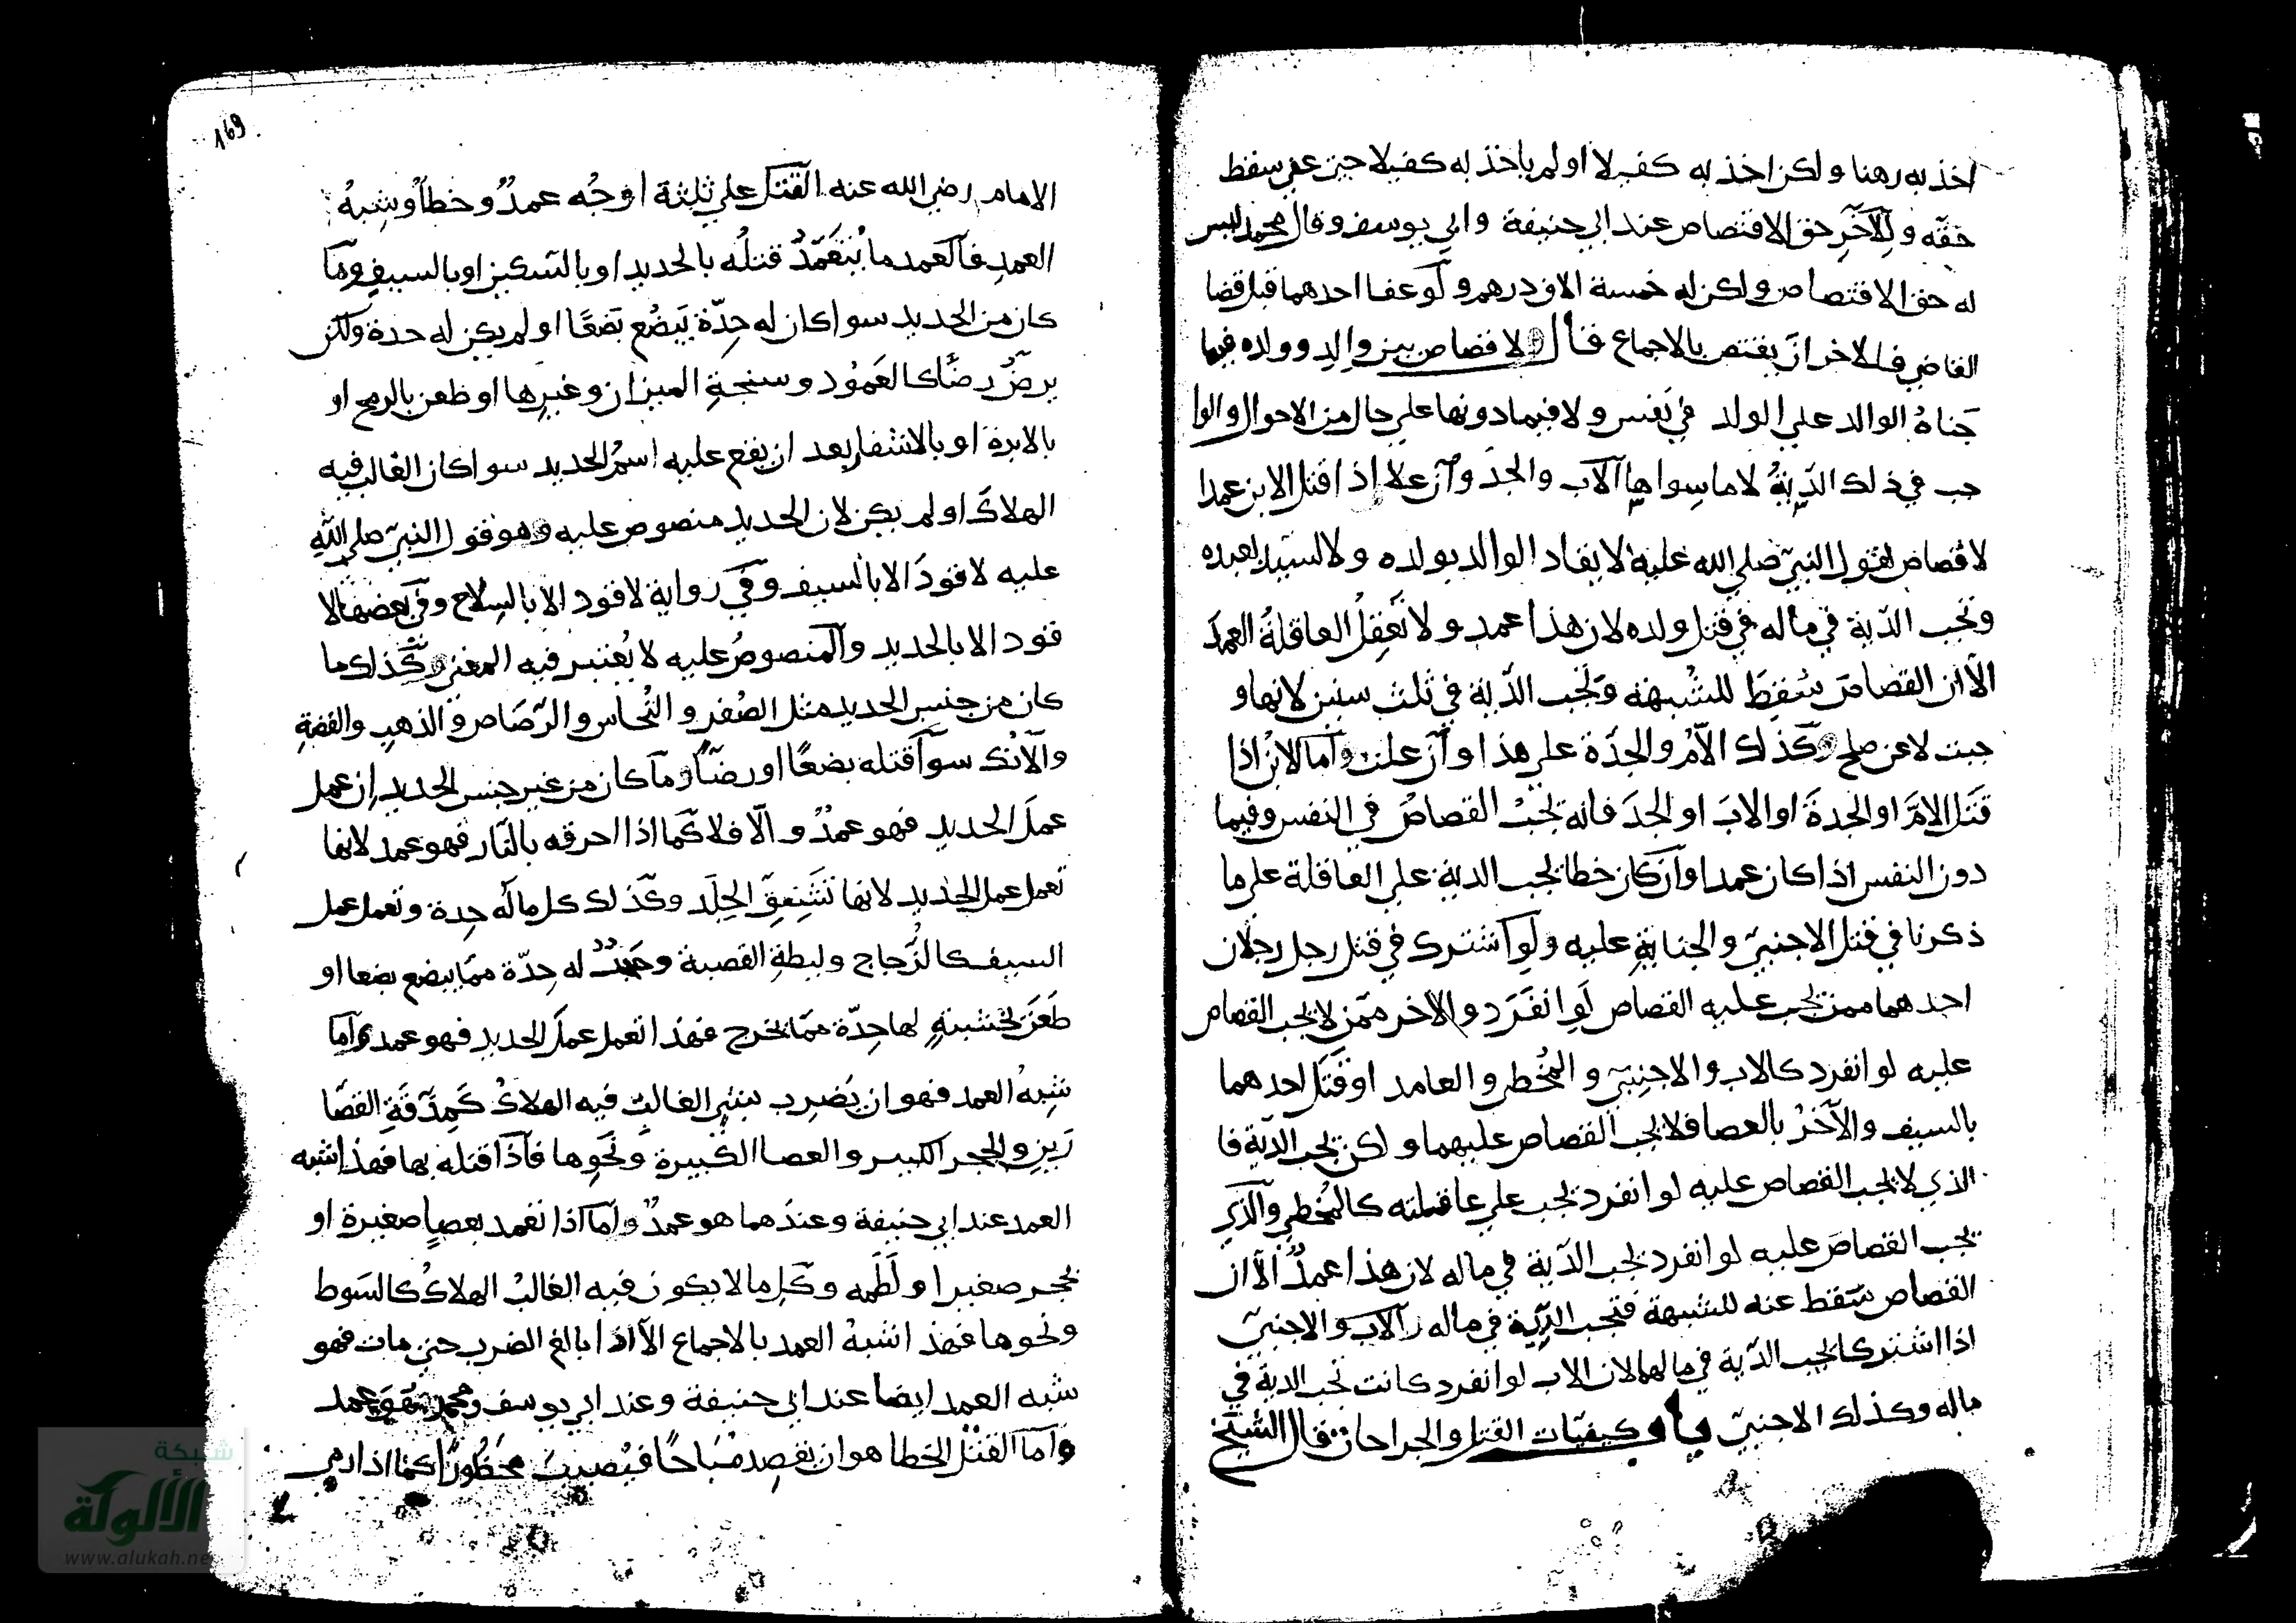 اخذ به رهنا ولكن اخذ به كفيلا او لم ياخذ به كفيلا حين عفى سقط
حقه وللآخر حق الاقتصاص عند ابي حنيفة وابي يوسف وقال محمد ليس
له حق الاقتصاص ولكن له خمسة الاف درهم ولو عفا احدهما قبل قضا
القاضي فللاخر ان يقتص بالاجماع قال لا قصاص بين والد وولده فيما
جناه الوالد على الولد في نفس ولا فيما دونها على حال من الاحوال والوا
جب في ذلك الدية لا ما سواها الاب والجد وان علا اذا قتل الابن عمدا
لا قصاص لقول النبي صلى الله عليه لا يقاد الوالد بولده ولا السيد بعبده
وتجب الدية في ماله في قتل ولده لان هذا عمد ولا تعقل العاقلة العمد
الا ان القصاص سقط للشبهة وتجب الدية في ثلث سنين لانها و
جبت لا عن صلح وكذلك الام والجدة على هذا وان علت واما الابن اذا
قتل الام او الجدة او الاب او الجد فانه تجب القصاص في النفس وفيما
دون النفس اذا كان عمدا وان كان خطا تجب الدية على العاقلة على ما
ذكرنا في قتل الاجنبي والجناية عليه ولو اشترك في قتل رجل رجلان
احدهما ممن تجب عليه القصاص لو انفرد والاخر ممن لا يجب القصاص
عليه لو انفرد كالاب والاجنبي والمخطي والعامد او قتل احدهما
بالسيف والآخر بالعصا فلا يجب القصاص عليهما ولكن تجب الدية فا
الذي لا يجب القصاص عليه لو انفرد تجب على عاقلته كالمخطي والذي
يجب القصاص عليه لو انفرد تجب الدية في ماله لان هذا عمد الا ان
القصاص سقط عنه للشبهة فتجب الدية في ماله والاب والاجنبي
اذا اشتركا تجب الدية في مالهما لان الاب لو انفرد كانت تجب الدية في
ماله وكذلك الاجنبي باب كيفيات القتل والجراحات قال الشيخ
169
الامام رضي الله عنه القتل على ثلثة اوجه عمد وخطا وشبه
العمد فالعمد ما يتعمد قتله بالحديد او بالسكين او بالسيف وما
كان من الحديد سوا كان له حدة يبضع بضعا او لم يكن له حدة ولكن
يرض رضا كالعمود وسنجة الميزان وغيرها او طعن بالرمح او
بالابرة او بالاشفار بعد ان يقع عليه اسم الحديد سوا كان الغالب فيه
الهلاك او لم يكن لان الحديد منصوص عليه وهو قول النبي صلى الله
عليه لا قود الا بالسيف وفي رواية لا قود الا بالسلاح وفي بعضها لا
قود الا بالحديد والمنصوص عليه لا يعتبر فيه المعنى وكذلك ما
كان من جنس الحديد مثل الصفر والنحاس والرصاص والذهب والفضة
والآنك سوا قتله بضعا او رضا وما كان من غير جنس الحديد ان عمل
عمل الحديد فهو عمد والا فلا كما اذا احرقه بالنار فهو عمد لانها
تعمل عمل الحديد لانها تشقق الجلد وكذلك كل ماله حدة وتعمل عمل
السيف كالزجاج وليطة القصبة وحجر له حدة مما يبضع بضعا او
طعن بخشبة لها حدة مما يخرج فهذا تعمل عمل الحديد فهو عمد واما
شبه العمد فهو ان يضرب بشي الغالب فيه الهلاك كمدقة القصا
رين والحجر الكبير والعصا الكبيرة ونحوها فاذا قتله بها فهذا شبه
العمد عند ابي حنيفة وعندهما هو عمد واما اذا تعمد بعصا صغيرة او
بحجر صغير او لطمه وكل ما لا يكون فيه الغالب الهلاك كالسوط
ونحوها فهذا شبه العمد بالاجماع الا اذا بالغ الضرب حتى مات فهو
شبه العمد ايضا عند ابي حنيفة وعند ابي يوسف ومحمد هو عمد
واما القتل الخطا هو ان تقصد مباحا فيصيب محظورا كما اذا رمى
شبكة
الألوكة
www.alukah.net